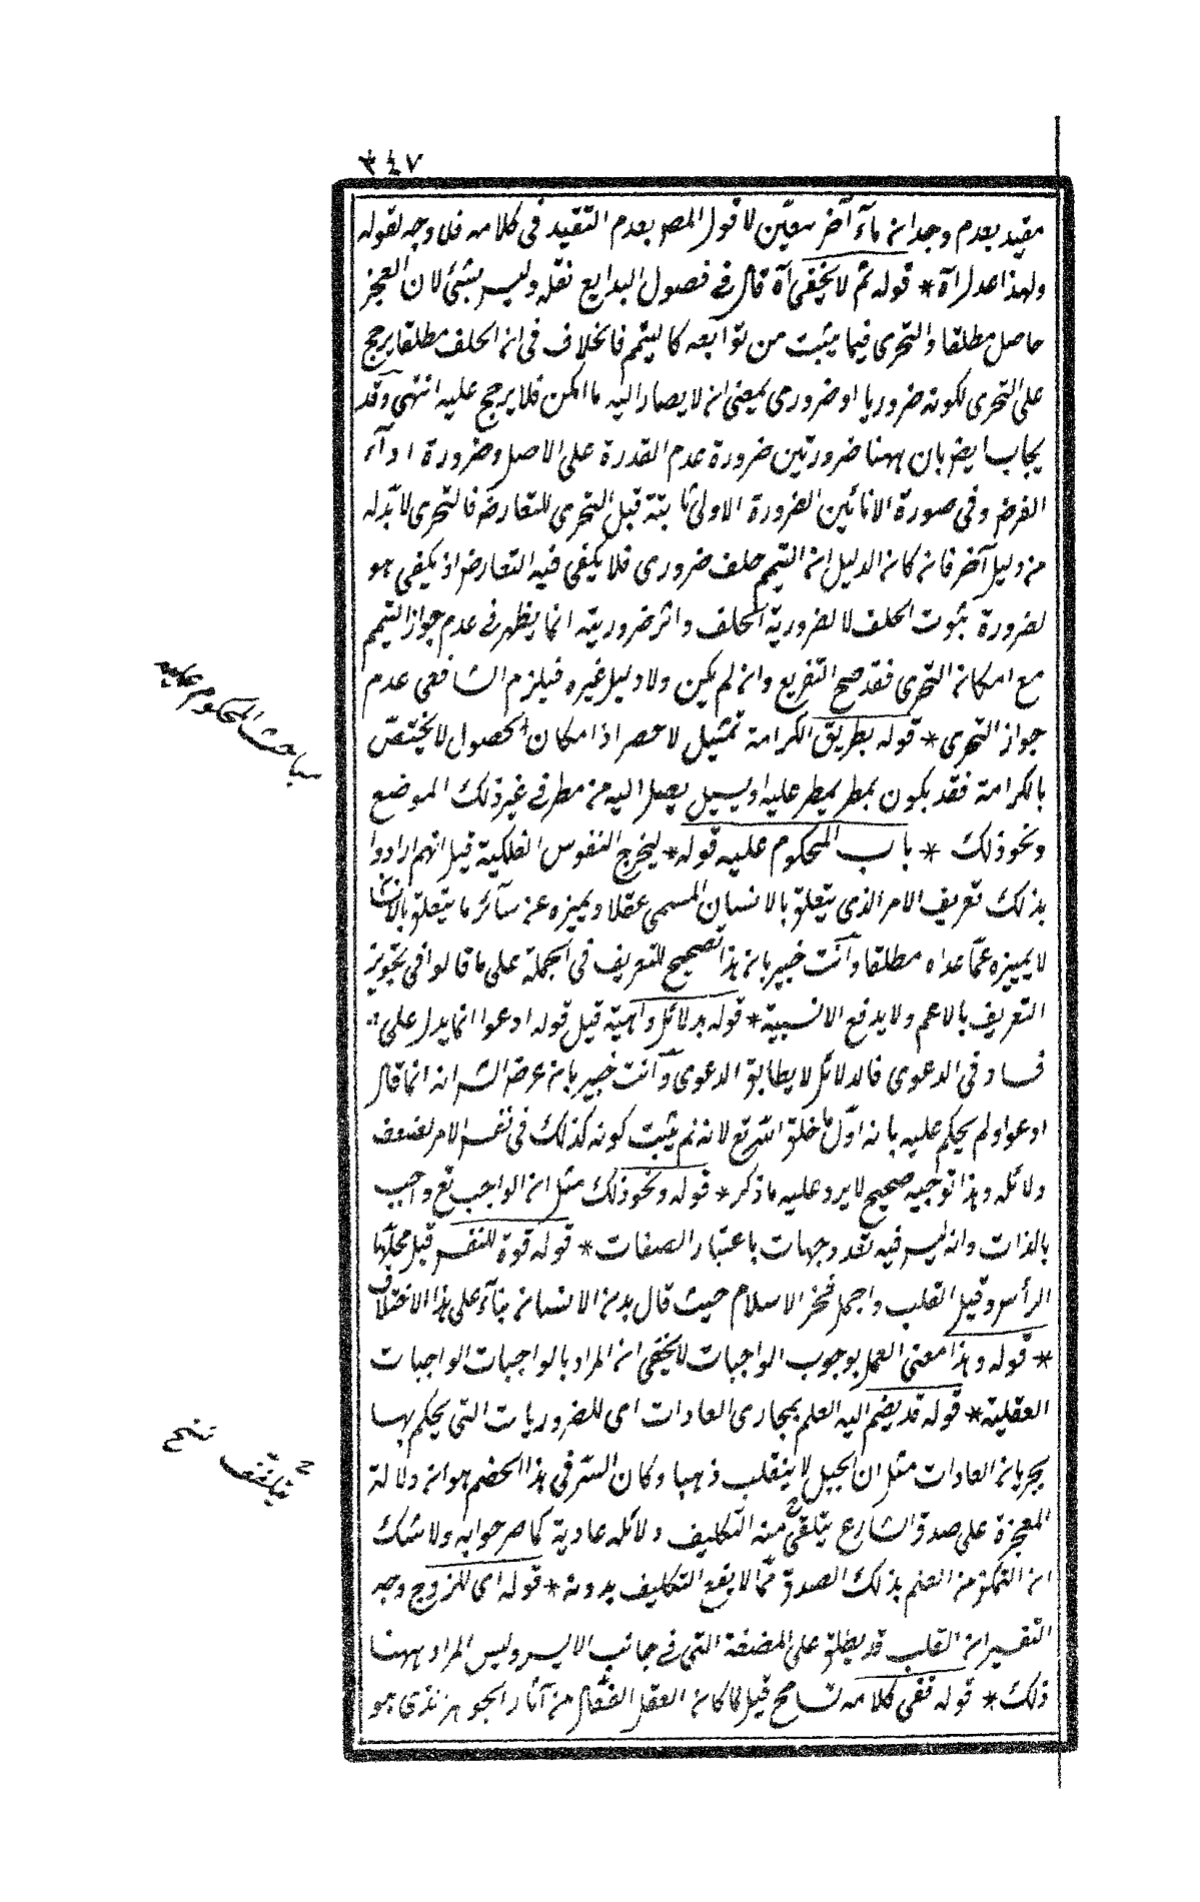 ٣٤٧
مقيد بعدم وجدان مآء آخر معيّن لا قول المص بعدم التقييد فى كلامه فلا وجه لقوله
ولهذا عدل آه * قوله ثم لا يخفى آه قال فى فصول البدايع نقله وليس بشئ لان العجز
حاصل مطلقا والتحرى فيما يثبت من توابعه كالتيمم فالخلاف فى ان الخلف مطلقا يرجح
على التحرى لكونه ضروريا او ضرورى بمعنى ان لا يصار اليه ما امكن فلا يرجح عليه انتهى وقد
يجاب ايضا بان ههنا ضرورتين ضرورة عدم القدرة على الاصل وضرورة ادآء
الفرض وفى صورة الانائين الضرورة الاولى ثابتة قبل التحرى للتعارض فالتحرى لا بد له
من دليل آخر فان كان الدليل ان التيمم خلف ضرورى فلا يكفى فيه التعارض اذ يكفى هو
لضرورة ثبوت الخلف لا لضرورية الخلف واثر ضروريته انما يظهر فى عدم جواز التيمم
مع امكان التحرى فقد صح التفريع وان لم يكن ولا دليل غيره فيلزم الشافعى عدم
جواز التحرى * قوله بطريق الكرامة تمثيل لا حصر اذ امكان الحصول لا يختص
بالكرامة فقد يكون بمطر يمطر عليه او يسيل يصل اليه من مطر فى غير ذلك الموضع
ونحو ذلك * باب المحكوم عليه قوله * ليخرج النفوس الفلكية قيل انهم ارادوا
بذلك تعريف الامر الذى يتعلق بالانسان المسمى عقلا ويميزه عن سآئر ما يتعلق بالانسان
لا يميزه عمّا عداه مطلقا وانت خبير بان هذا تصحيح للتعريف فى الجملة على ما قالوا فى تجويز
التعريف بالاعم ولا يدفع الانسبية * قوله بدلائل واهية قيل قوله ادعوا انما يدل على
فساد فى الدعوى فالدلائل لا يطابق الدعوى وانت خبير بان غرض الشـ انه انما قال
ادعوا ولم يحكم عليه بانه اول ما خلق الله تع لانه لم يثبت كونه كذلك فى نفس الامر لضعف
دلائله وهذا توجيه صحيح لا يرد عليه ما ذكر * قوله ونحو ذلك مثل ان الواجب تع واجب
بالذات وانه ليس فيه تعدد جهات باعتبار الصفات * قوله قوة للنفس قيل محلّها
الرأس وقيل القلب واجمل فخر الاسلام حيث قال بدن الانسان بنآء على هذا الاختلاف
* قوله وهذا معنى العمل بوجوب الواجبات لا يخفى ان المراد بالواجبات الواجبات
العقلية * قوله قد يضم اليه العلم بمجارى العادات اى للضروريات التى يحكم بها
بجريان العادات مثل ان الجبل لا ينقلب ذهبا وكان السر فى هذا الضم هو ان دلالة
المعجزة على صدق الشارع يتلقى منه التكليف دلائله عادية كما صرحوا به ولا شك
ان التمكن من العلم بذلك الصدق ممّا لا يقع التكليف بدونه * قوله اى للروح وجه
التفسير ان القلب قد يطلق على المضغة التى فى جانب الايسر وليس المراد ههنا
ذلك * قوله ففى كلامه تسامح قيل لما كان العقل الفعّال من آثار الجوهر الذى هو
مباحث المحكوم عليه